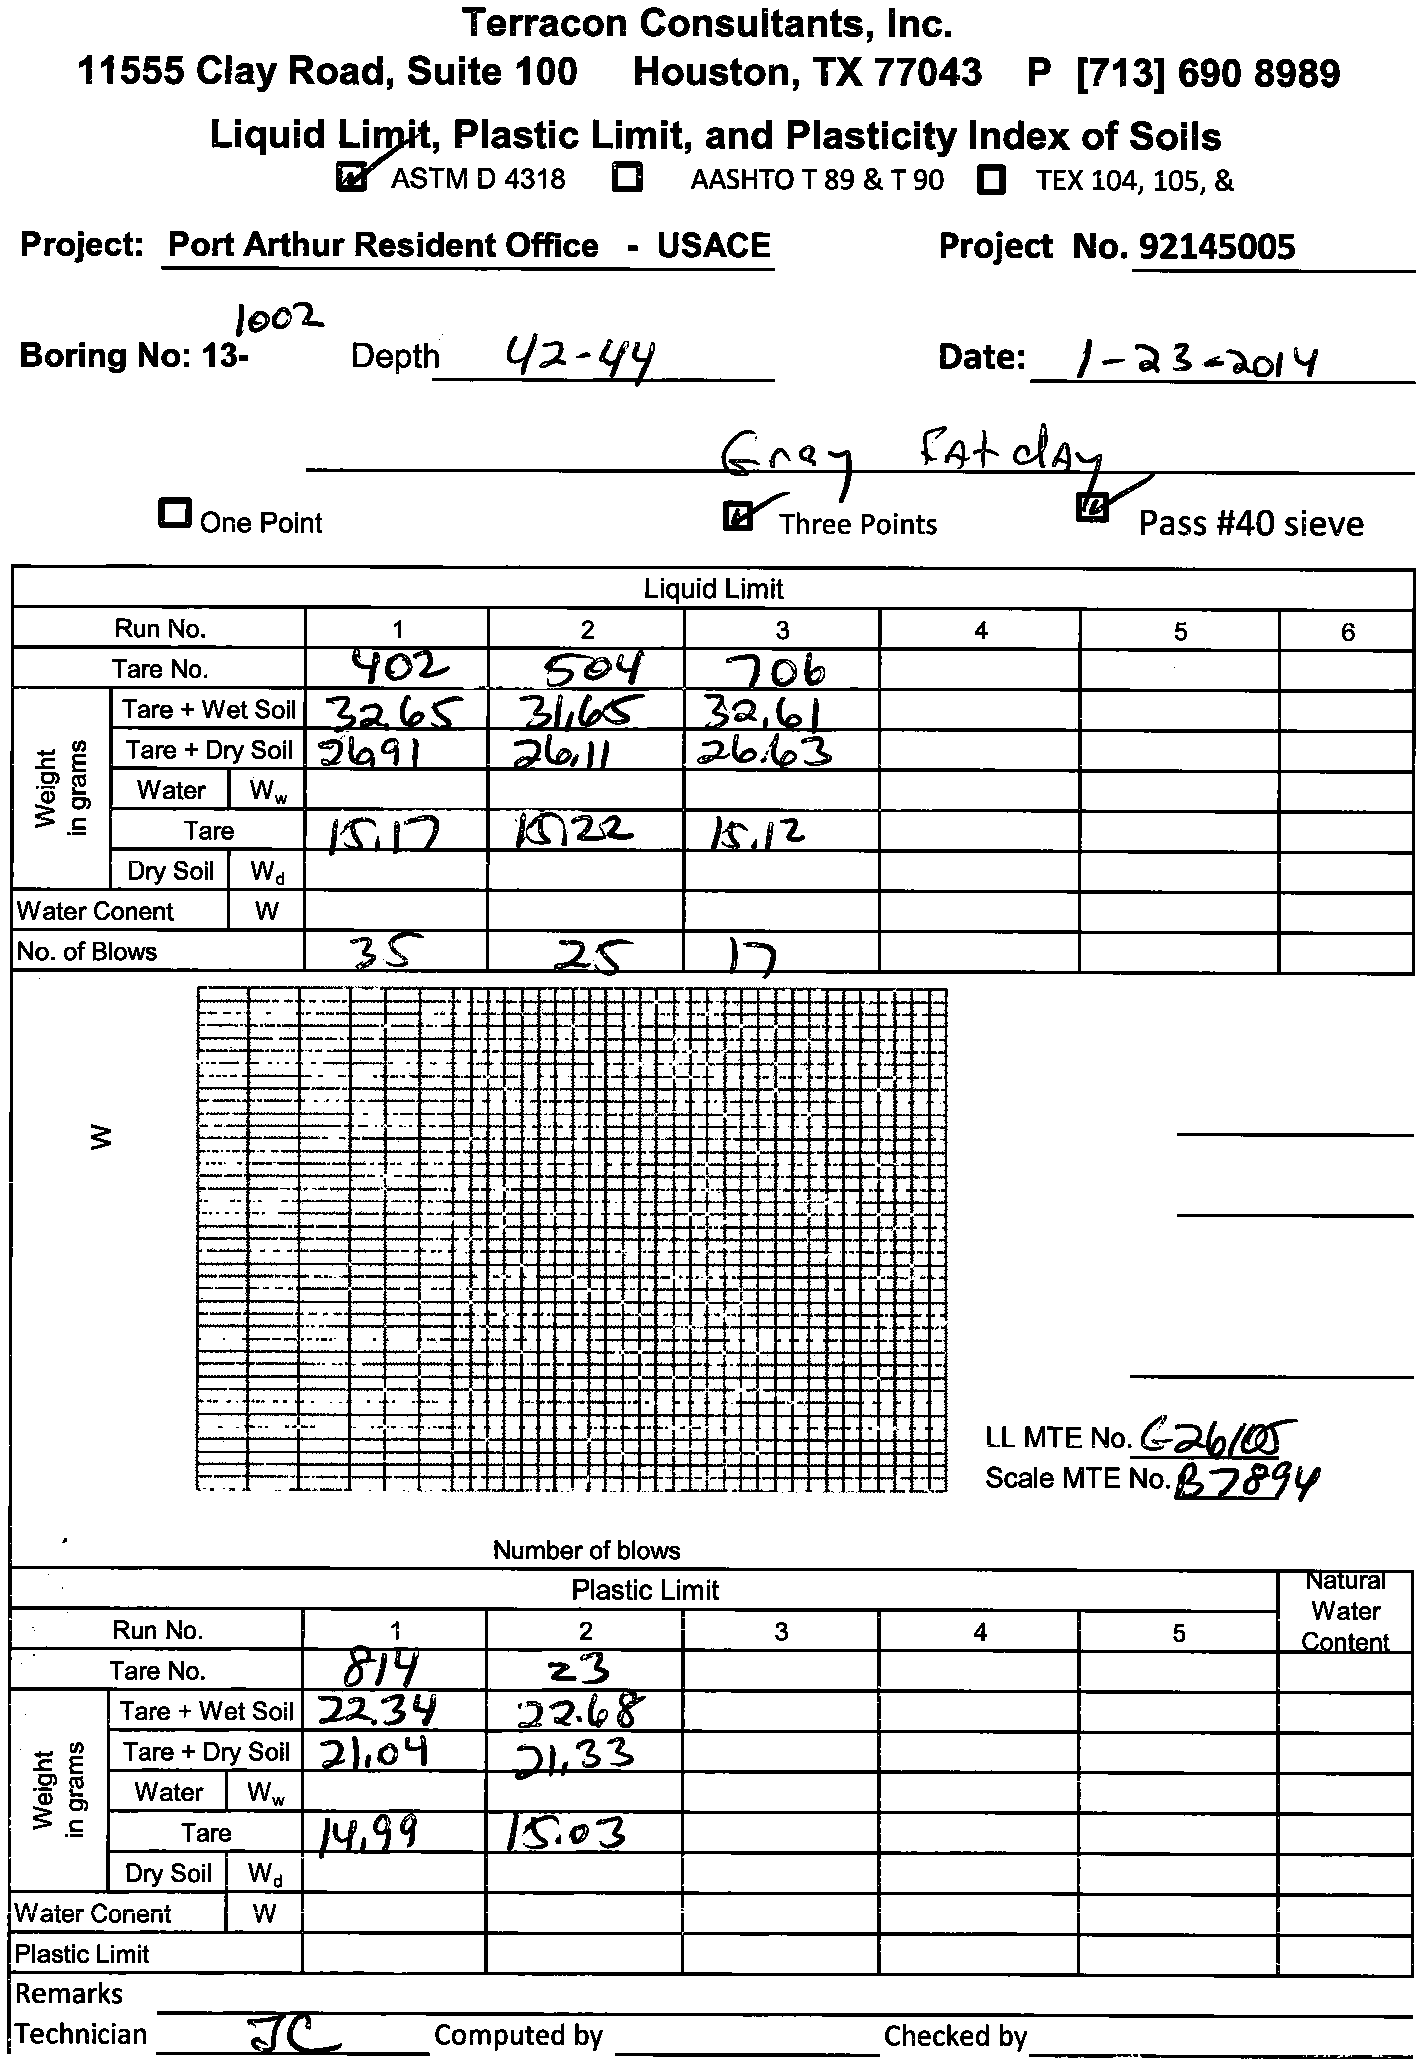 Terracon Consultants, Inc.
11555 Clay Road, Suite 100 Houston, TX 77043 P [713] 690 8989
Liquid Limit, Plastic Limit, and Plasticity Index of Soils
ASTM D 4318 AASHTO T 89 & T 90 TEX 104, 105, &
Project: Port Arthur Resident Office - USACE Project No. 92145005
1002
Boring No: 13- Depth 42-44 Date: 1-23-2014
Gray Fat clay
One Point Three Points Pass #40 sieve
Liquid Limit
Run No. 1 2 3 4 5 6
Tare No. 402 504 706
Weight in grams
Tare + Wet Soil 32.65 31.65 32.61
Tare + Dry Soil 26.91 26.11 26.63
Water Ww
Tare 15.17 15.22 15.12
Dry Soil Wd
Water Conent W
No. of Blows 35 25 17
W
LL MTE No. G26105
Scale MTE No. B7894
Number of blows
Plastic Limit Natural Water Content
Run No. 1 2 3 4 5
Tare No. 814 23
Weight in grams
Tare + Wet Soil 22.34 22.68
Tare + Dry Soil 21.04 21.33
Water Ww
Tare 14.99 15.03
Dry Soil Wd
Water Conent W
Plastic Limit
Remarks
Technician JC Computed by Checked by